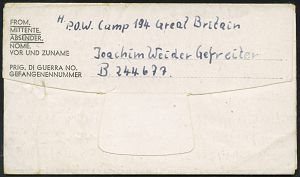 FROM.
MITTENTE.
ABSENDER.
NOME.
VOR UND ZUNAME
PRIG. DI GUERRA NO.
GEFANGENENNUMMER
P.O.W. Camp 194 Great Britain
Joachim Weider Gefreiter
B 244677.